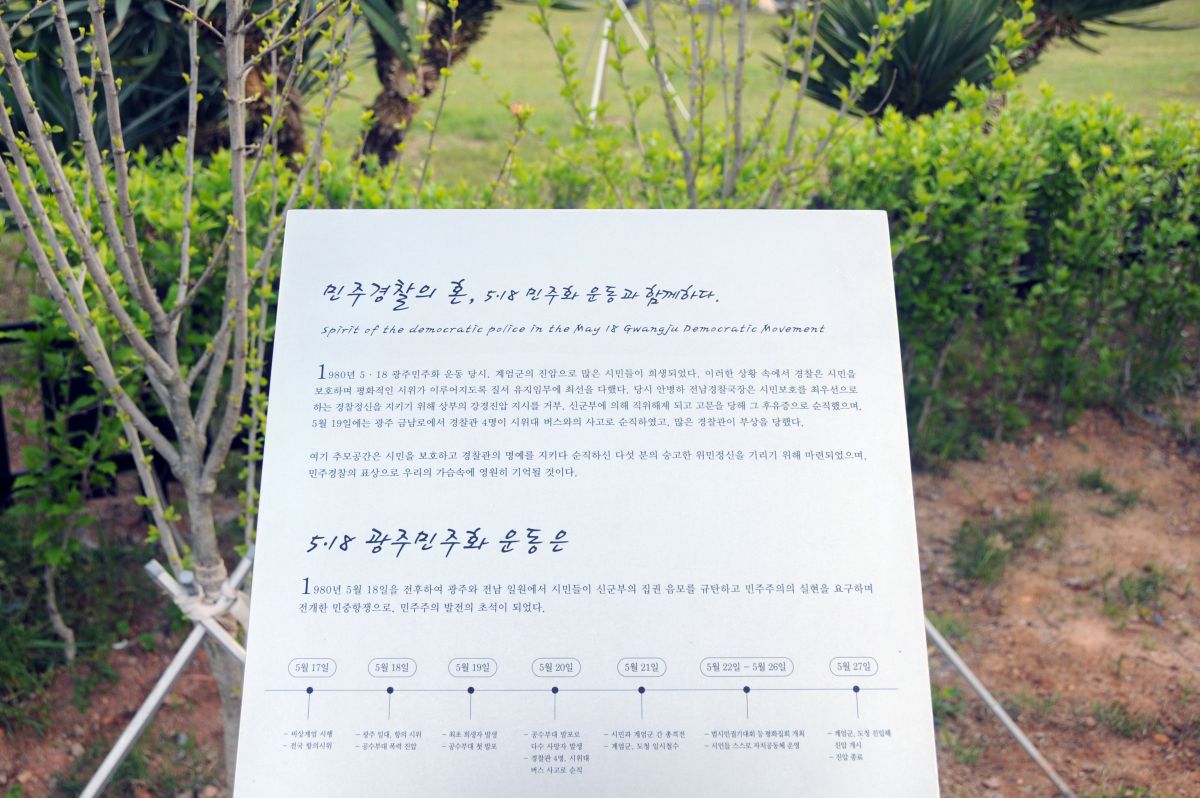 민주경찰의 혼, 5·18 민주화 운동과 함께하다.
Spirit of the democratic police in the May 18 Gwangju Democratic Movement
1980년 5 · 18 광주민주화 운동 당시, 계엄군의 진압으로 많은 시민들이 희생되었다. 이러한 상황 속에서 경찰은 시민을
보호하며 평화적인 시위가 이루어지도록 질서 유지임무에 최선을 다했다. 당시 안병하 전남경찰국장은 시민보호를 최우선으로
하는 경찰정신을 지키기 위해 상부의 강경진압 지시를 거부, 신군부에 의해 직위해제 되고 고문을 당해 그 후유증으로 순직했으며,
5월 19일에는 광주 금남로에서 경찰관 4명이 시위대 버스와의 사고로 순직하였고, 많은 경찰관이 부상을 당했다.
여기 추모공간은 시민을 보호하고 경찰관의 명예를 지키다 순직하신 다섯 분의 숭고한 위민정신을 기리기 위해 마련되었으며,
민주경찰의 표상으로 우리의 가슴속에 영원히 기억될 것이다.
5·18 광주민주화 운동은
1980년 5월 18일을 전후하여 광주와 전남 일원에서 시민들이 신군부의 집권 음모를 규탄하고 민주주의의 실현을 요구하며
전개한 민중항쟁으로, 민주주의 발전의 초석이 되었다.
5월 17일 5월 18일 5월 19일 5월 20일 5월 21일 5월 22일 – 5월 26일 5월 27일
– 비상계엄 시행
– 전국 항의시위
– 광주 일대, 항의 시위
– 공수부대 폭력 진압
– 최초 희생자 발생
– 공수부대 첫 발포
– 공수부대 발포로
다수 사망자 발생
– 경찰관 4명, 시위대
버스 사고로 순직
– 시민과 계엄군 간 총격전
– 계엄군, 도청 임시철수
– 범시민궐기대회 등 평화집회 개최
– 시민들 스스로 자치공동체 운영
– 계엄군, 도청 진입해
진압 개시
– 진압 종료